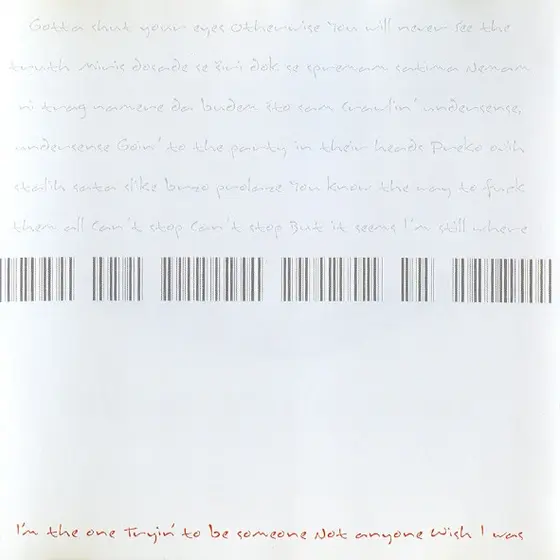 Gotta shut your eyes Otherwise You will never See the
truth Miris dosade se širi dok se spremam satima Nemam
ni trag namere da budem što sam Crawlin' undersense,
undersense Goin' to the party in their heads Preko ovih
stalih sata slike brzo prolaze You know the way to fuck
them all Can't stop Can't stop But it seems I'm still where
I'm the one Tryin' to be someone Not anyone Wish I was